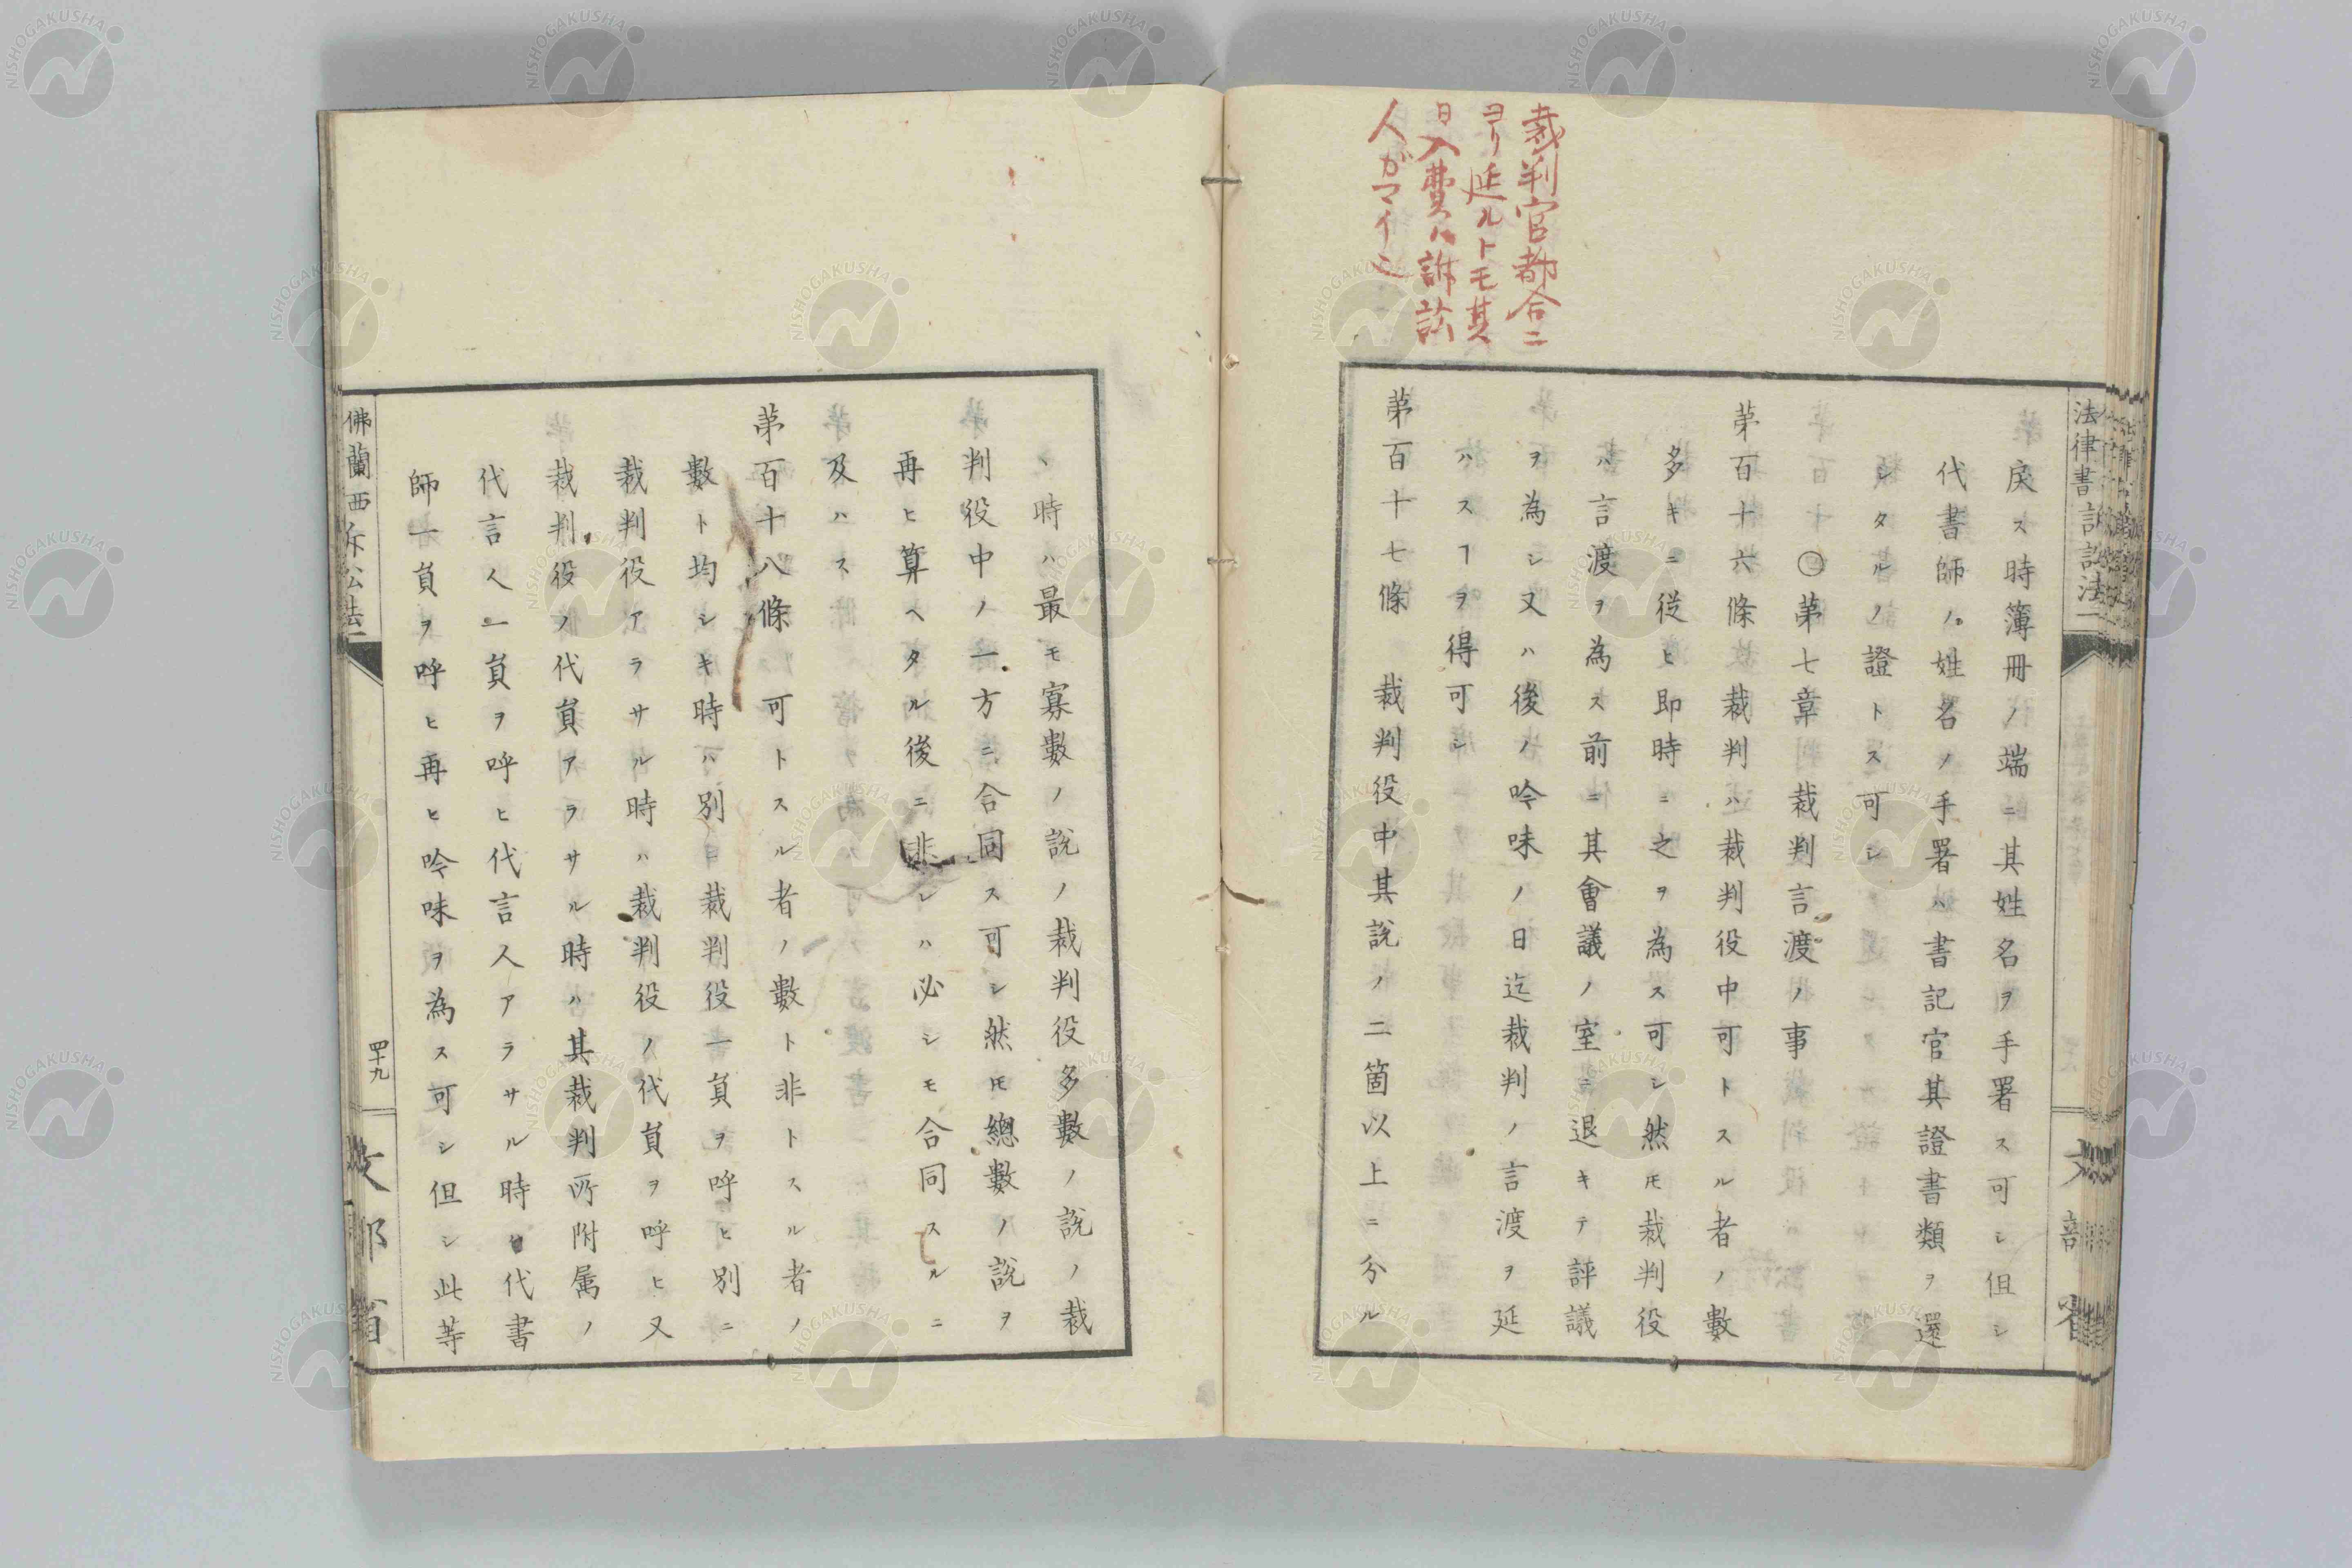 裁判官都合ニ
ヨリ延ルトモ其
日入費ハ訴訟
人ガマイ
法律書 訴訟法一
戻ス時簿冊ノ端ニ其姓名ヲ手署ス可シ但シ
代書師ノ姓名ノ手署ハ書記官其證書類ヲ還
シタルノ證トス可シ
〇第七章 裁判言渡ノ事
第百十六條 裁判ハ裁判役中可トスル者ノ數
多キニ従ヒ即時ニ之ヲ為ス可シ然𪜈裁判役
ハ言渡ヲ為ス前ニ其會議ノ室ニ退キテ評議
ヲ為シ又ハ後ノ吟味ノ日迄裁判ノ言渡ヲ延
ハスヿヲ得可シ
第百十七條 裁判役中其説ノ二箇以上ニ分ル
文部省
ヽ時ハ最モ寡數ノ説ノ裁判役多數ノ説ノ裁
判役中ノ一方ニ合同ス可シ然𪜈總數ノ説ヲ
再ヒ算ヘタル後ニ非レハ必シモ合同スルニ
及ハス
第百十八條 可トスル者ノ數ト非トスル者ノ
數ト均シキ時ハ別ニ裁判役一員ヲ呼ヒ別ニ
裁判役アラサル時ハ裁判役ノ代員ヲ呼ヒ又
裁判役ノ代員アラサル時ハ其裁判所附属ノ
代言人一員ヲ呼ヒ代言人アラサル時ハ代書
師一員ヲ呼ヒ再ヒ吟味ヲ為ス可シ但シ此等
佛蘭西訴訟法一
四十九
文部省
NISHOGAKUSHA